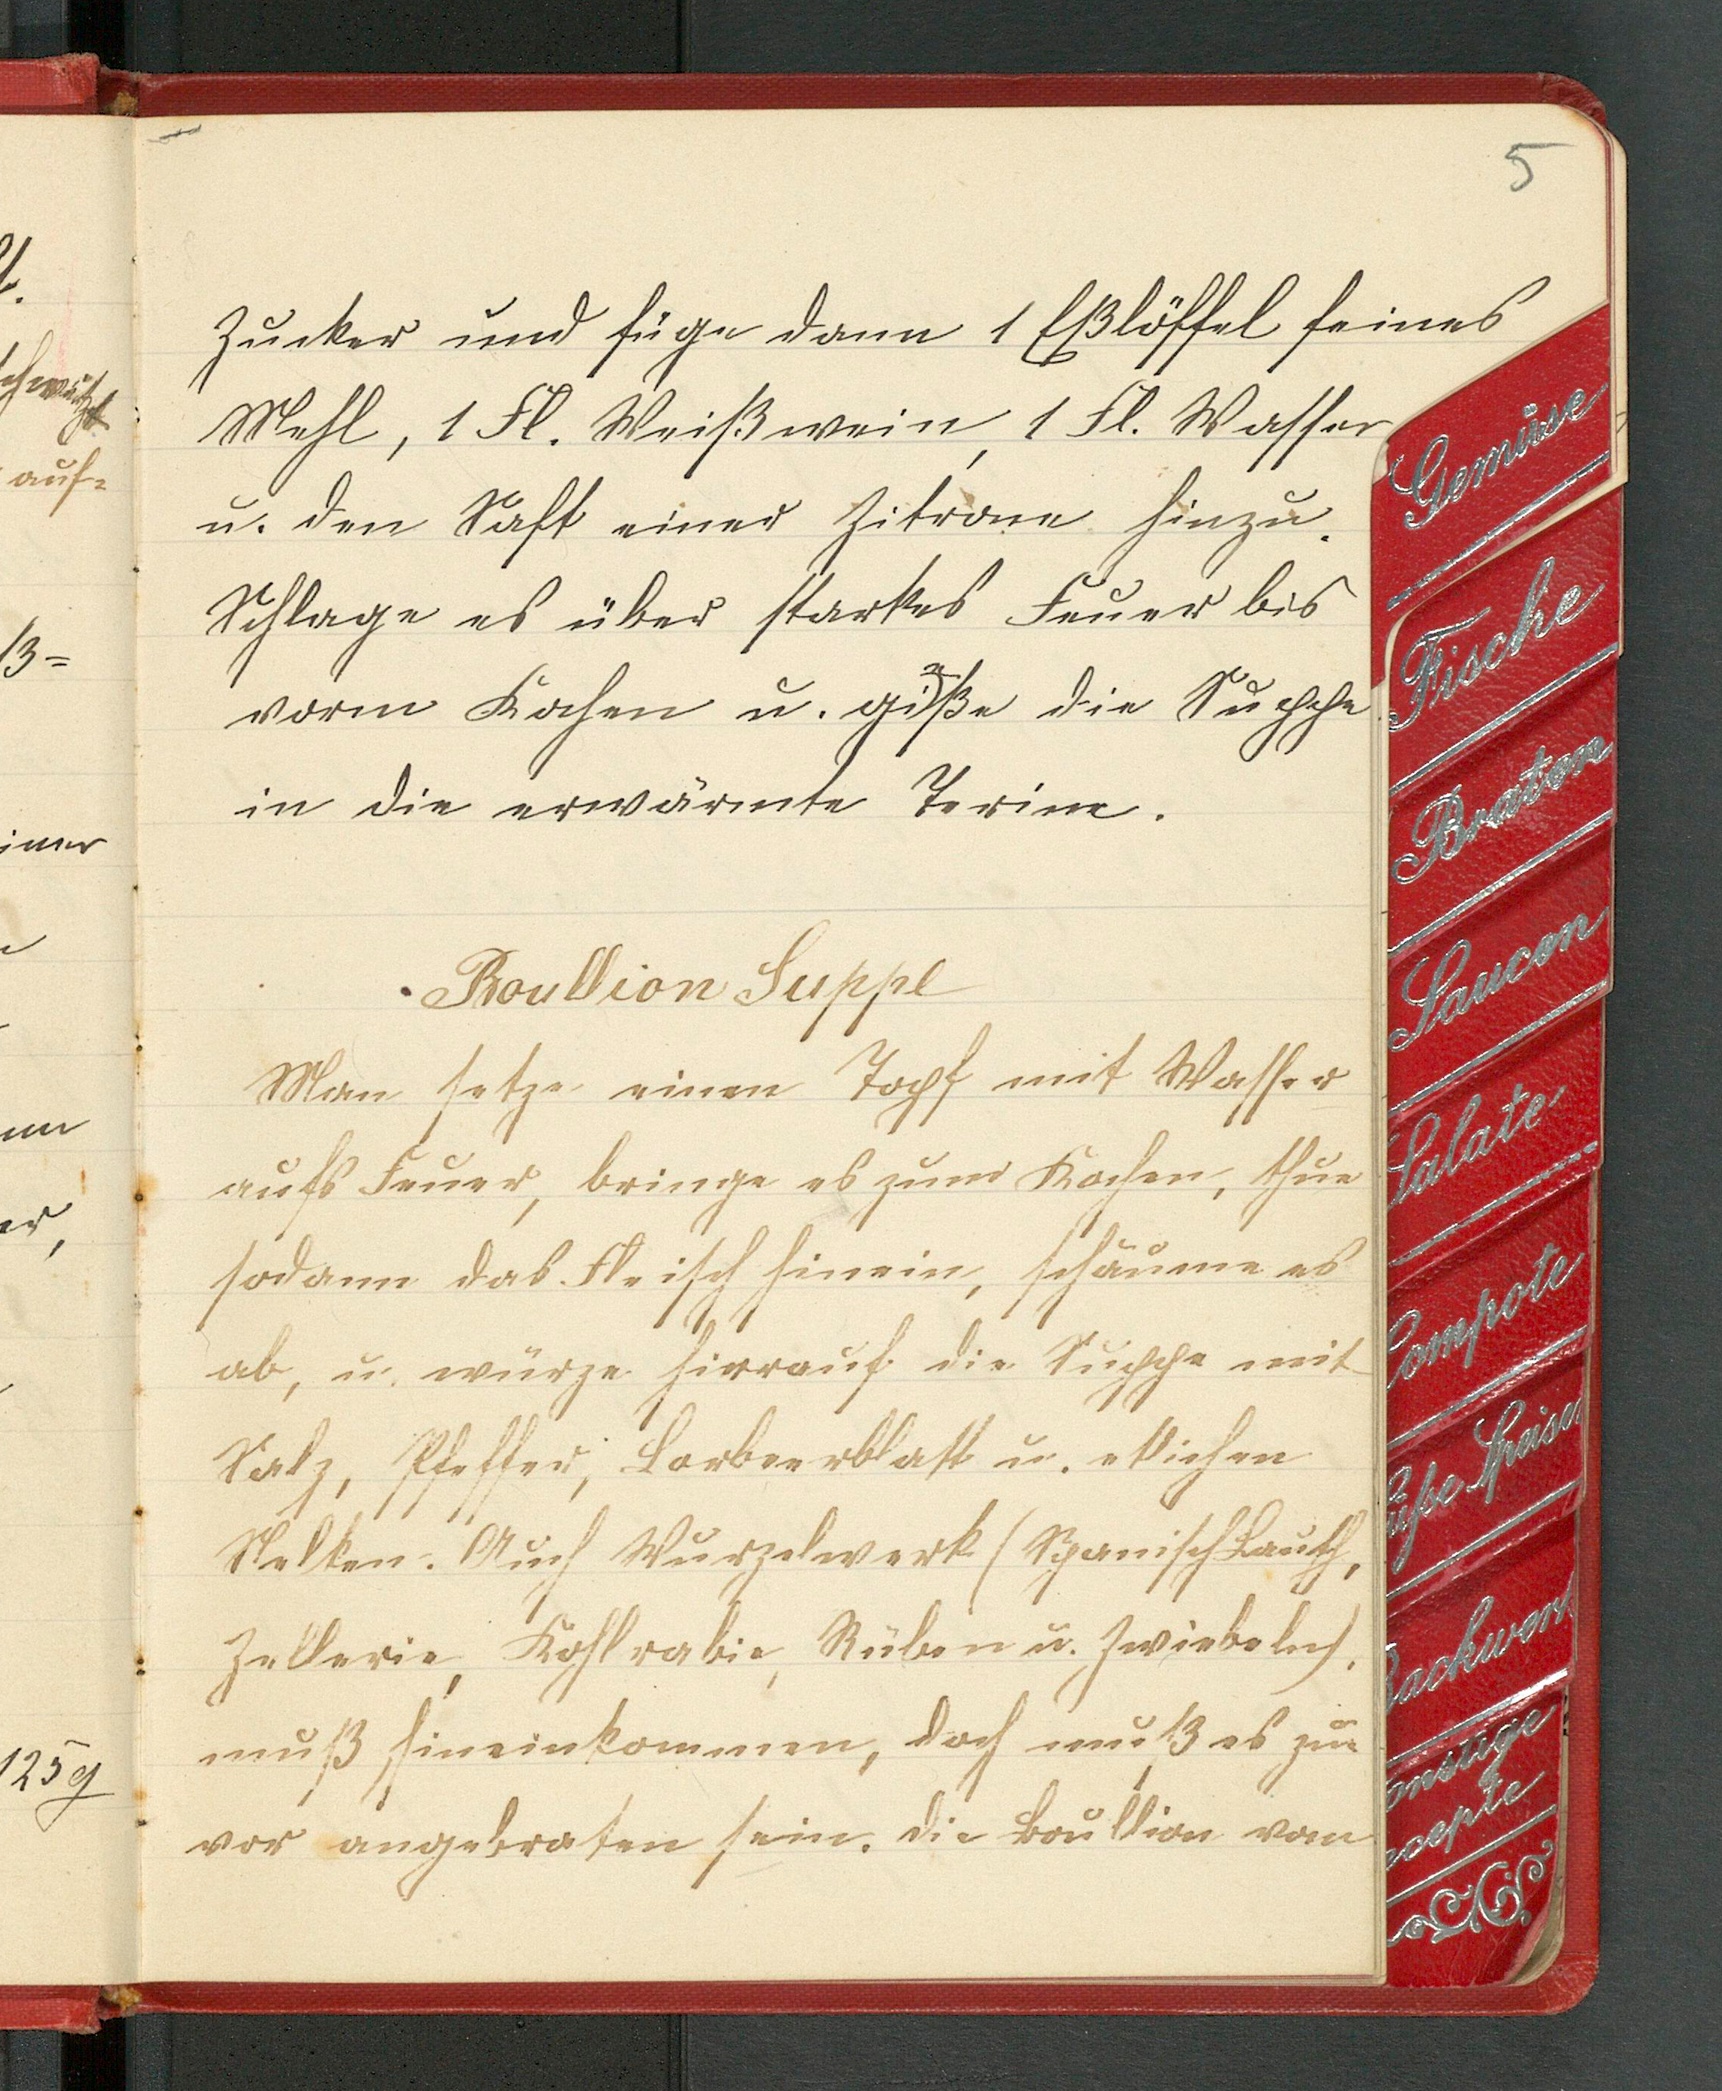 5
Zucker und füge dann 1 Eßlöffel feines
Mehl, 1 Fl. Weißwein, 1 Fl. Wasser
u. den Saft einer Zitrone hinzu.
Schlage es über starkes Feuer bis
vorm Kochen u. gieße die Suppe
in die erwärmte Terine.
Boullion Suppe
Man setze einen Topf mit Wasser
aufs Feuer, bringe es zum Kochen, thue
sodann das Fleisch hinein, schäume es
ab, u. würze hierrauf die Suppe mit
Salz, Pfeffer, Lorbeerblatt u. etlichen
Nelken. Auch Wurzelwerk (Spanisch Lauch,
Zellerie, Kohlrabie, Rüben u. Zwiebeln).
muß hineinkommen, doch muß es zu
vor angebraten sein. Die Boullion von
Gemüse
Fische
Braten
Saucen
Salate
Compote
üße Speisen
Backwerk
onstige
ecepte
auf-
ß=
einer
er,
125 g